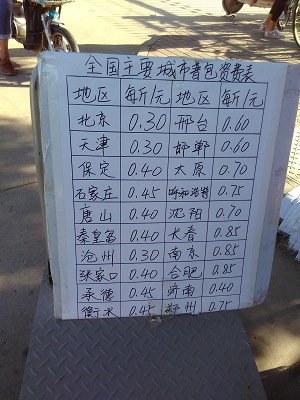 全国主要城市書包资费表
地区 每斤/元 地区 每斤/元
北京 0.30 邢台 0.60
天津 0.30 邯郸 0.60
保定 0.40 太原 0.70
石家庄 0.45 呼和浩特 0.75
唐山 0.40 沈阳 0.70
秦皇岛 0.40 长春 0.85
沧州 0.30 南京 0.85
张家口 0.40 合肥 0.85
承德 0.45 济南 0.40
衡水 0.45 郑州 0.75